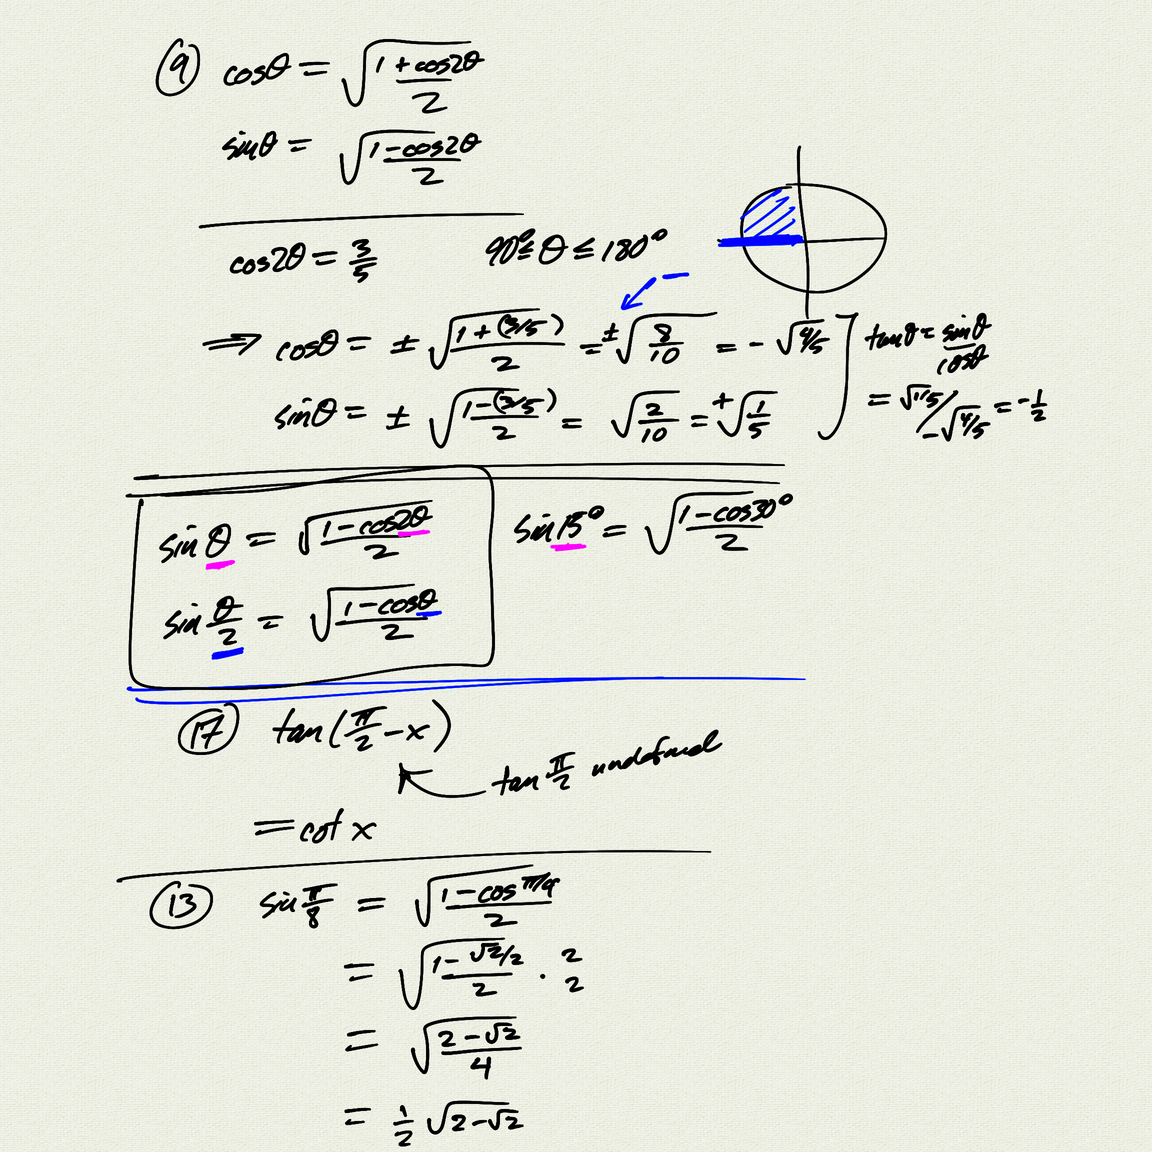 ⑨ cosθ = √((1+cos2θ)/2)
sinθ = √((1-cos2θ)/2)
cos2θ = 3/5 90° ≤ θ ≤ 180°
⇒ cosθ = ± √((1+(3/5))/2) = ±√(8/10) = -√(4/5) ] tanθ = sinθ/cosθ
sinθ = ± √((1-(3/5))/2) = √(2/10) = +√(1/5) = √(1/5)/-√(4/5) = -1/2
sin θ = √((1-cos2θ)/2) sin15° = √((1-cos30°)/2)
sin θ/2 = √((1-cosθ)/2)
⑰ tan(π/2 - x)
tan π/2 undefined
= cot x
⑬ sin π/8 = √((1-cos π/4)/2)
= √((1-√2/2)/2 · 2/2)
= √((2-√2)/4)
= 1/2 √(2-√2)